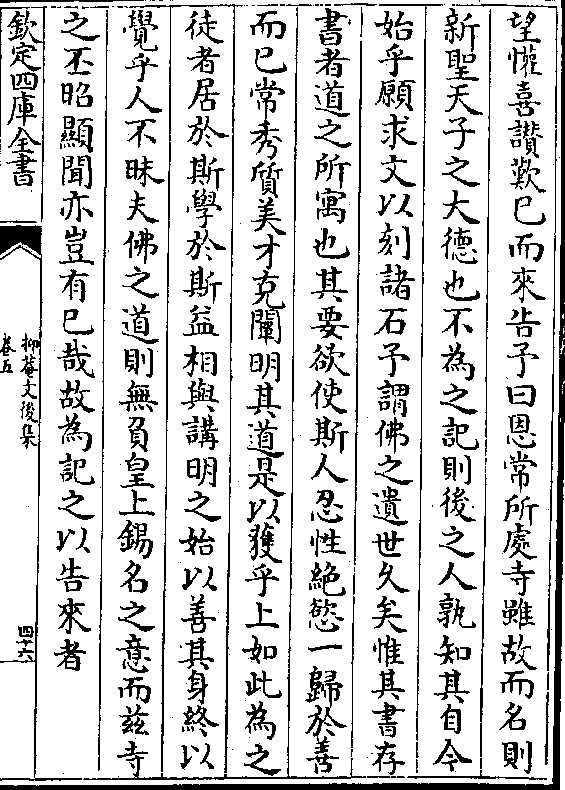 望懽喜讃歎已而來告予曰恩常所處寺雖故而名則
新聖天子之大德也不為之記則後之人孰知其自今
始乎願求文以刻諸石予謂佛之遺世久矣惟其書存
書者道之所寓也其要欲使斯人忍性絶慾一歸於善
而已常秀質美才克闡明其道是以獲乎上如此為之
徒者居於斯學於斯益相與講明之始以善其身終以
覺乎人不昧夫佛之道則無負皇上錫名之意而兹寺
之丕昭顯聞亦豈有已哉故為記之以告來者
欽定四庫全書
抑菴文後集
卷五
四十六